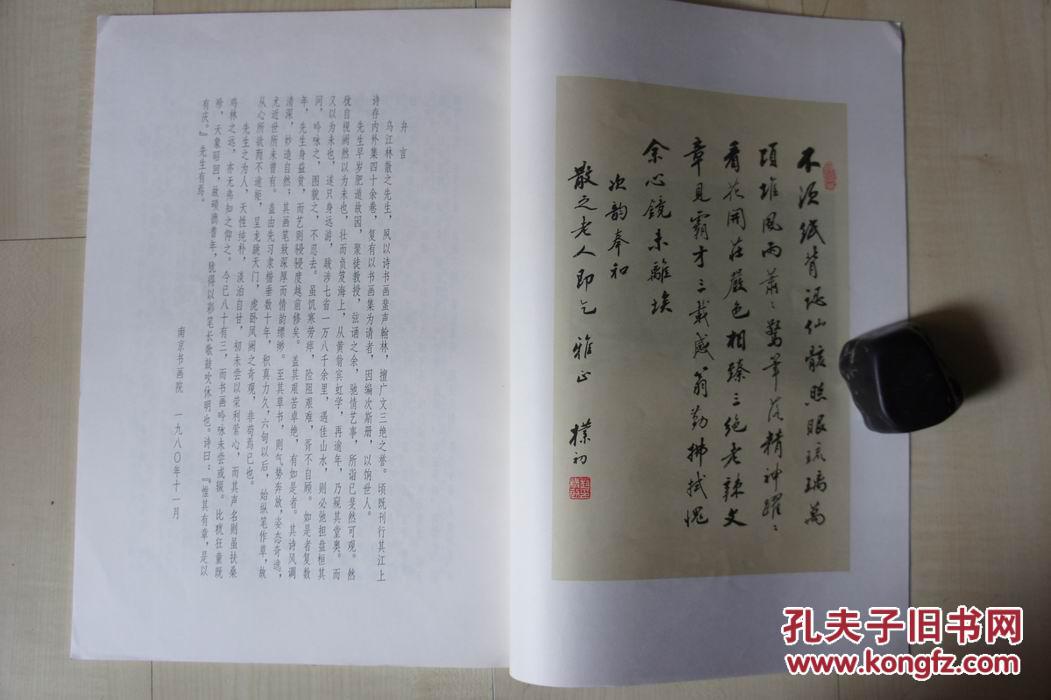 不须纸背认仙骸照眼琉璃万
项堆风雨萧〻惊笔落精神跃〻
看花开庄严色相臻三绝老辣文
章见霸才三载感翁勤拂拭愧
余心镜未离埃
次韵奉和
散之老人即乞 雅正 朴初
弁言
乌江林散之先生，夙以诗书画蜚声翰林，擅广文三绝之誉。顷既刊行其江上
诗存内外集四十余卷，复有以书画集为请者，因编次斯册，以饷世人。
先生早岁肥遁故园，聚徒教授，弦诵之余，驰情艺事，所诣已斐然可观。然
犹自视阙然以为未也，壮而负笈海上，从黄翁宾虹学，再逾年，乃窥其堂奥。而
又以为未也，遂只身远游，跋涉七省一万八千余里，遇佳山水，则必弛担盘桓其
间，吟咏之，图貌之，不忍去。虽饥寒劳瘁，险阻艰难，胥不自顾。如是者复数
年，先生身益贫，而艺则骎骎度越前修矣。盖其艰苦卓绝，有如是者。其诗风调
清深，妙造自然；其画笔致深厚而情韵缥缈。至其草书，则气势奔放，姿态奇逸，
尤近世所未曾有。盖由先习隶楷垂数十年，积真力久，六旬以后，始纵笔作草，故
从心所欲而不逾矩，呈龙跳天门，虎卧凤阙之奇观，非苟焉已也。
先生之为人，天性纯朴，淡泊自甘，初未尝以荣利萦心，而其声名则虽扶桑
鸡林之远，亦无弗知之仰之。今已八十有三，而书画吟咏未尝或辍。比狉狂童既
殄，天象昭回，故硕德耆年，犹得以彩笔长歌鼓吹休明也。诗曰：『惟其有章，是以
有庆。』先生有焉。
南京书画院 一九八〇年十一月
孔夫子旧书网
www.kongfz.com